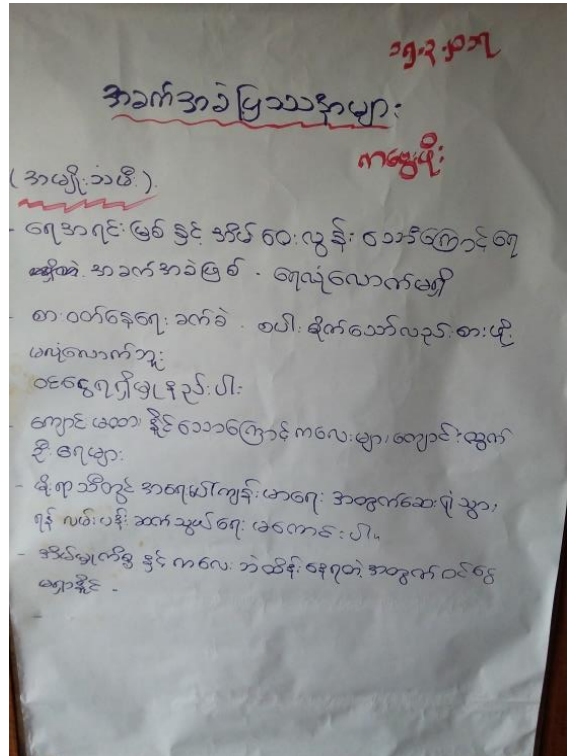 အခက်အခဲပြဿနာများ
(အမျိုးသမီး)
- ရေအရင်းမြစ် နှင့် အိမ် ဝေးလွန်း သောကြောင့် ရေ
အခက်အခဲဖြစ် - ရေလုံလောက်မှုမရှိ
- စားဝတ်နေရေး ခက်ခဲ - စပါးစိုက်သော်လည်း စားဖို့
မလုံလောက်ဘူး
ဝင်ငွေရရှိမှုနည်းပါး
- ကျောင်းမထားနိုင်သောကြောင့် ကလေးများ ကျောင်းထွက်
ဦးရေများ
- မိုးရာသီတွင် အရေးပေါ်ကျန်းမာရေး အတွက် ဆေးရုံသွား
ရန် လမ်းပန်း ဆက်သွယ်ရေး မကောင်းပါ။
- အိမ်မှုကိစ္စ နှင့် ကလေး ဘဲထိန်းနေရတဲ့ အတွက် ဝင်ငွေ
မရှာနိုင် -